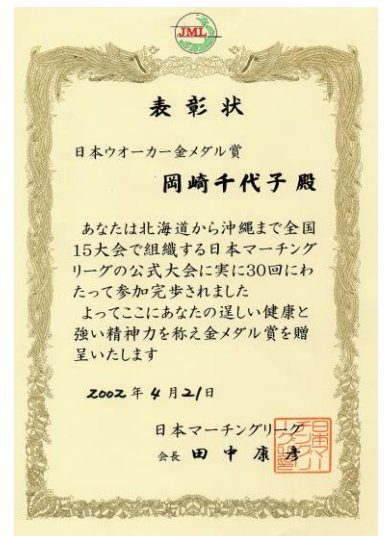 JML
表彰状
日本ウオーカー金メダル賞
岡崎千代子殿
あなたは北海道から沖縄まで全国
15大会で組織する日本マーチング
リーグの公式大会に実に30回にわ
たって参加完歩されました
よってここにあなたの逞しい健康と
強い精神力を称え金メダル賞を贈
呈いたします
2002年4月21日
日本マーチングリーグ
会長 田中康彦